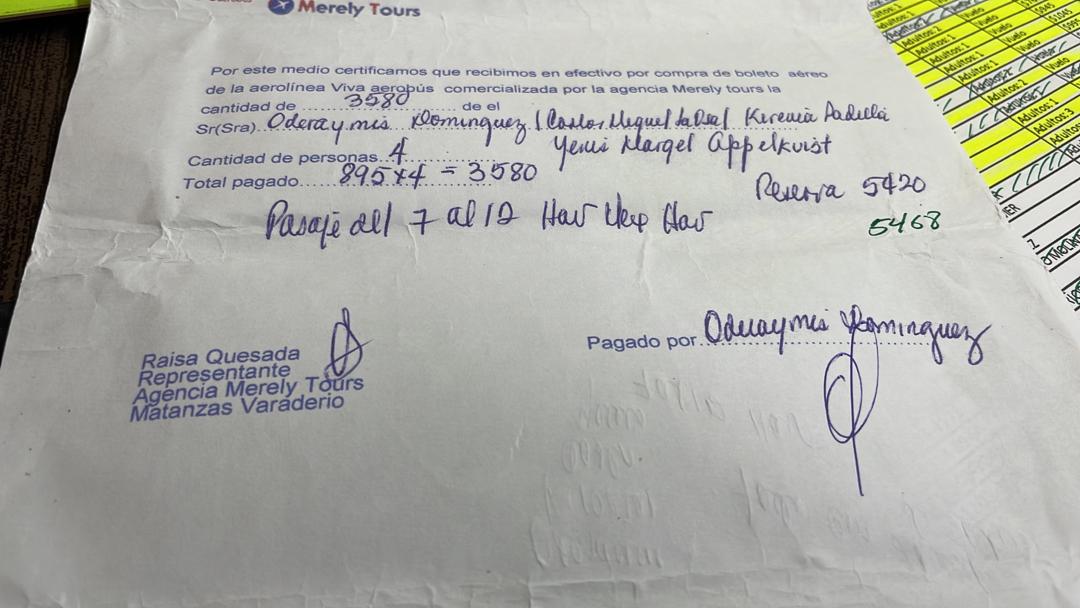 Merely Tours
Por este medio certificamos que recibimos en efectivo por compra de boleto aéreo
de la aerolínea Viva aerobús comercializada por la agencia Merely tours la
cantidad de 3580 de el
Sr(Sra). Oderaymis Dominguez / Carlos Miguel Kirenia Padilla
Yenis Margel Appelkvist
Cantidad de personas 4
Total pagado 895x4 = 3580
Reserva 5420
5468
Pasaje del 7 al 12 Hav Hav
Raisa Quesada
Representante
Agencia Merely Tours
Matanzas Varaderio
Pagado por Oderaymis Dominguez
Adultos: 1
Vuelo
Adultos: 2
Vuelo
Adultos: 1
Vuelo
Adultos: 1
Vuelo
Adultos: 1
Adultos: 3
Adultos: 2